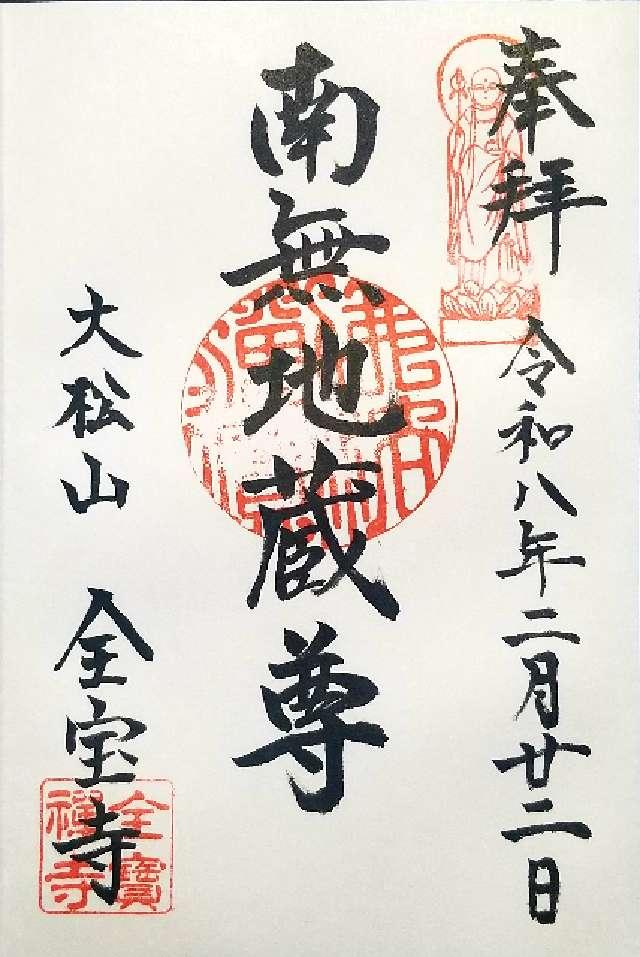 奉拝
令和八年二月廿二日
南無地蔵尊
大松山 全宝寺
全寳禅寺